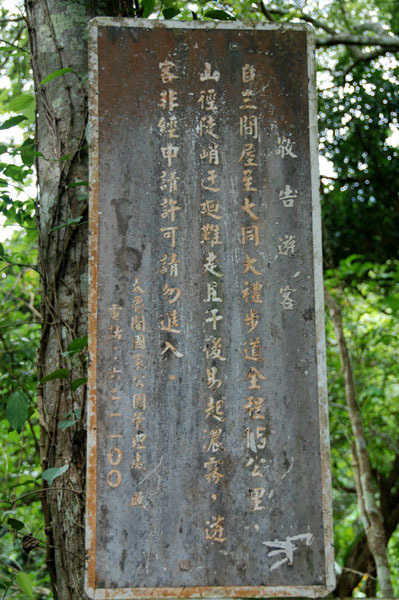 敬告遊客
自三間屋至大同大禮步道全程15公里,
山徑陡峭迂迴難走且午後易起濃霧,遊
客非經申請許可請勿進入.
太魯閣國家公園管理處 啟
電話:六二一一00